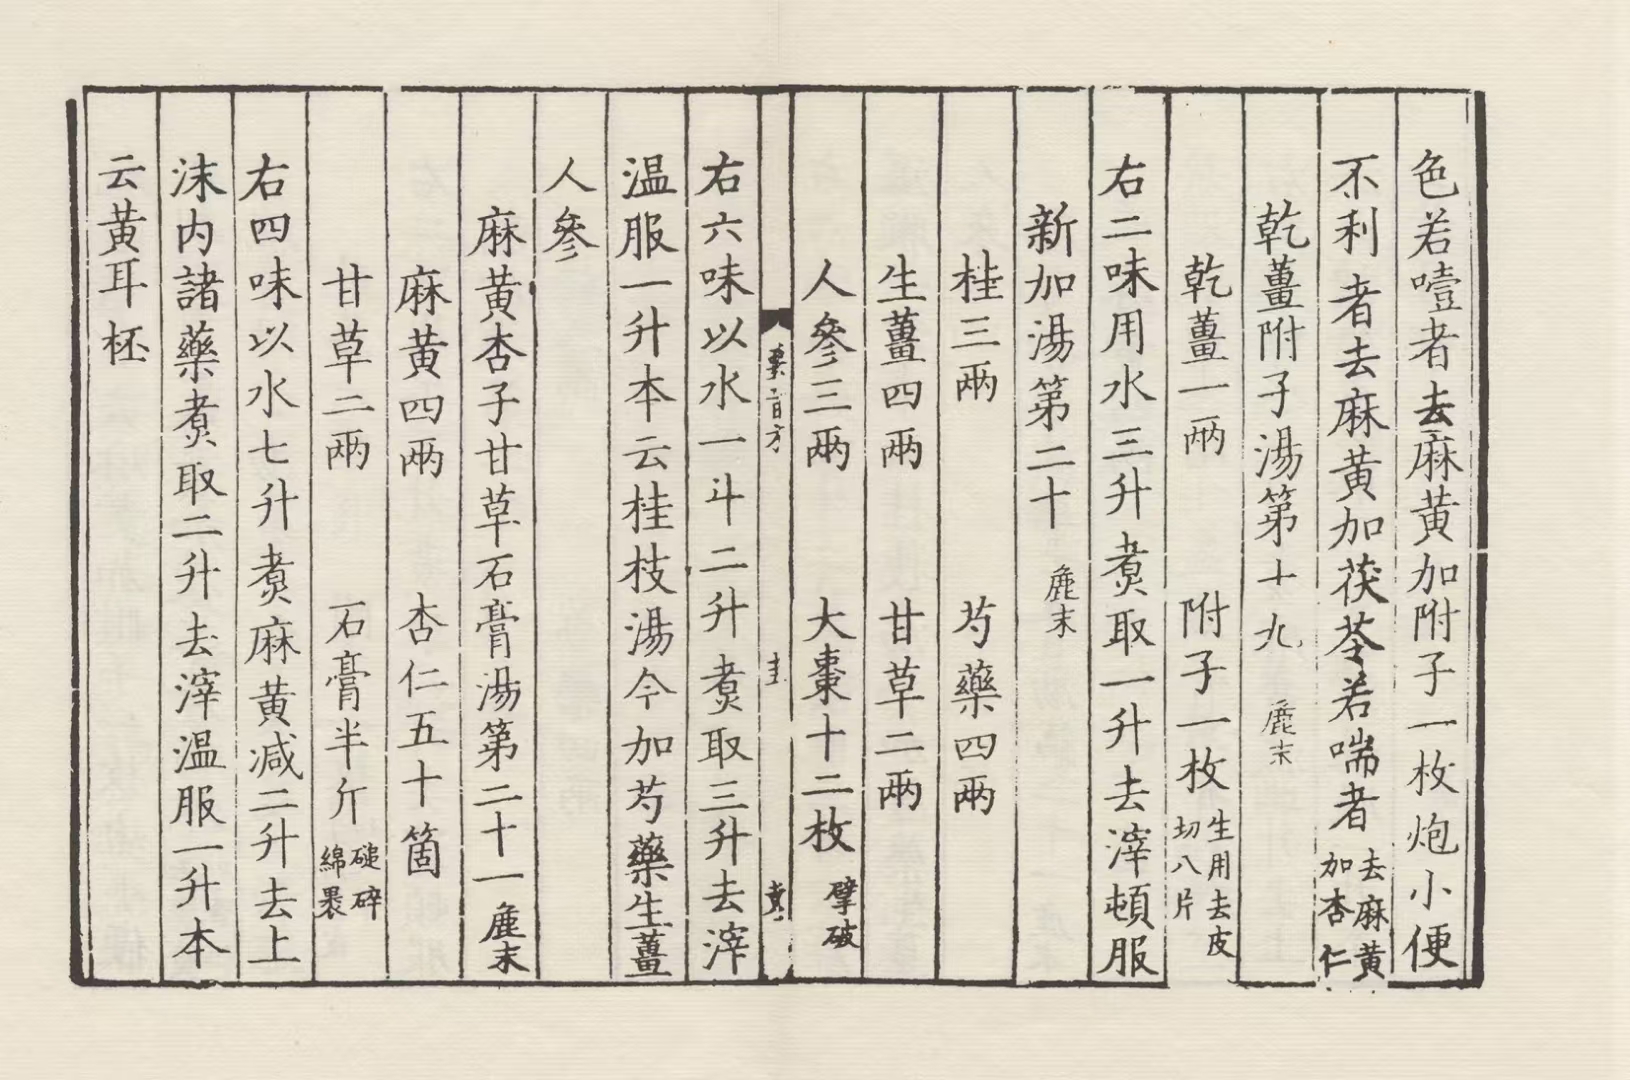 色若噎者去麻黃加附子一枚炮小便
不利者去麻黃加茯苓若喘者去麻黃加杏仁
乾薑附子湯第十九麄末
乾薑一兩附子一枚生用去皮切八片
右二味用水三升煑取一升去滓頓服
新加湯第二十麄末
桂三兩芍藥四兩
生薑四兩甘草二兩
人參三兩大棗十二枚擘破
右六味以水一斗二升煑取三升去滓
温服一升本云桂枝湯今加芍藥生薑
人參
麻黃杏子甘草石膏湯第二十一麄末
麻黃四兩杏仁五十箇
甘草二兩石膏半斤磓碎綿褁
右四味以水七升煑麻黃減二升去上
沫内諸藥煑取二升去滓温服一升本
云黃耳柸